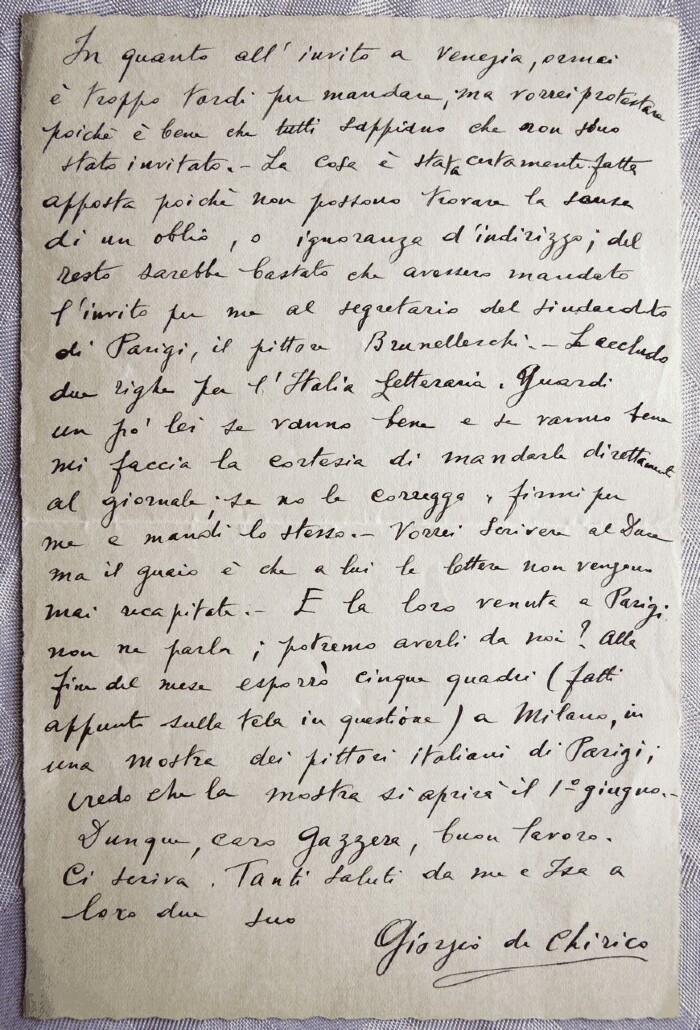 In quanto all' invito a Venezia, ormai
è troppo tardi per mandare, ma vorrei protestare
poichè è bene che tutti sappiano che non sono
stato invitato.- La cosa è stata certamente fatta
apposta poichè non possono trovare la scusa
di un oblio, o ignoranza d'indirizzo; del
resto sarebbe bastato che avessero mandato
l'invito per me al segretario del sindacato
di Parigi, il pittore Brunelleschi.- Le accludo
due righe per l'Italia Letteraria. Guardi
un pò' lei se vanno bene e se vanno bene
mi faccia la cortesia di mandarle direttamente
al giornale; se no le corregga, firmi per
me e mandi lo stesso.- Vorrei scrivere al Duce
ma il guaio è che a lui le lettere non vengono
mai recapitate.- E la loro venuta a Parigi
non ne parla; potremo averli da noi? Alla
fine del mese esporrò cinque quadri (fatti
appunto sulla tela in questione) a Milano, in
una mostra dei pittori italiani di Parigi;
credo che la mostra si aprirà il 1º giugno.-
Dunque, caro Gazzera, buon lavoro.
Ci scriva. Tanti saluti da me e Isa a
loro due suo
Giorgio de Chirico